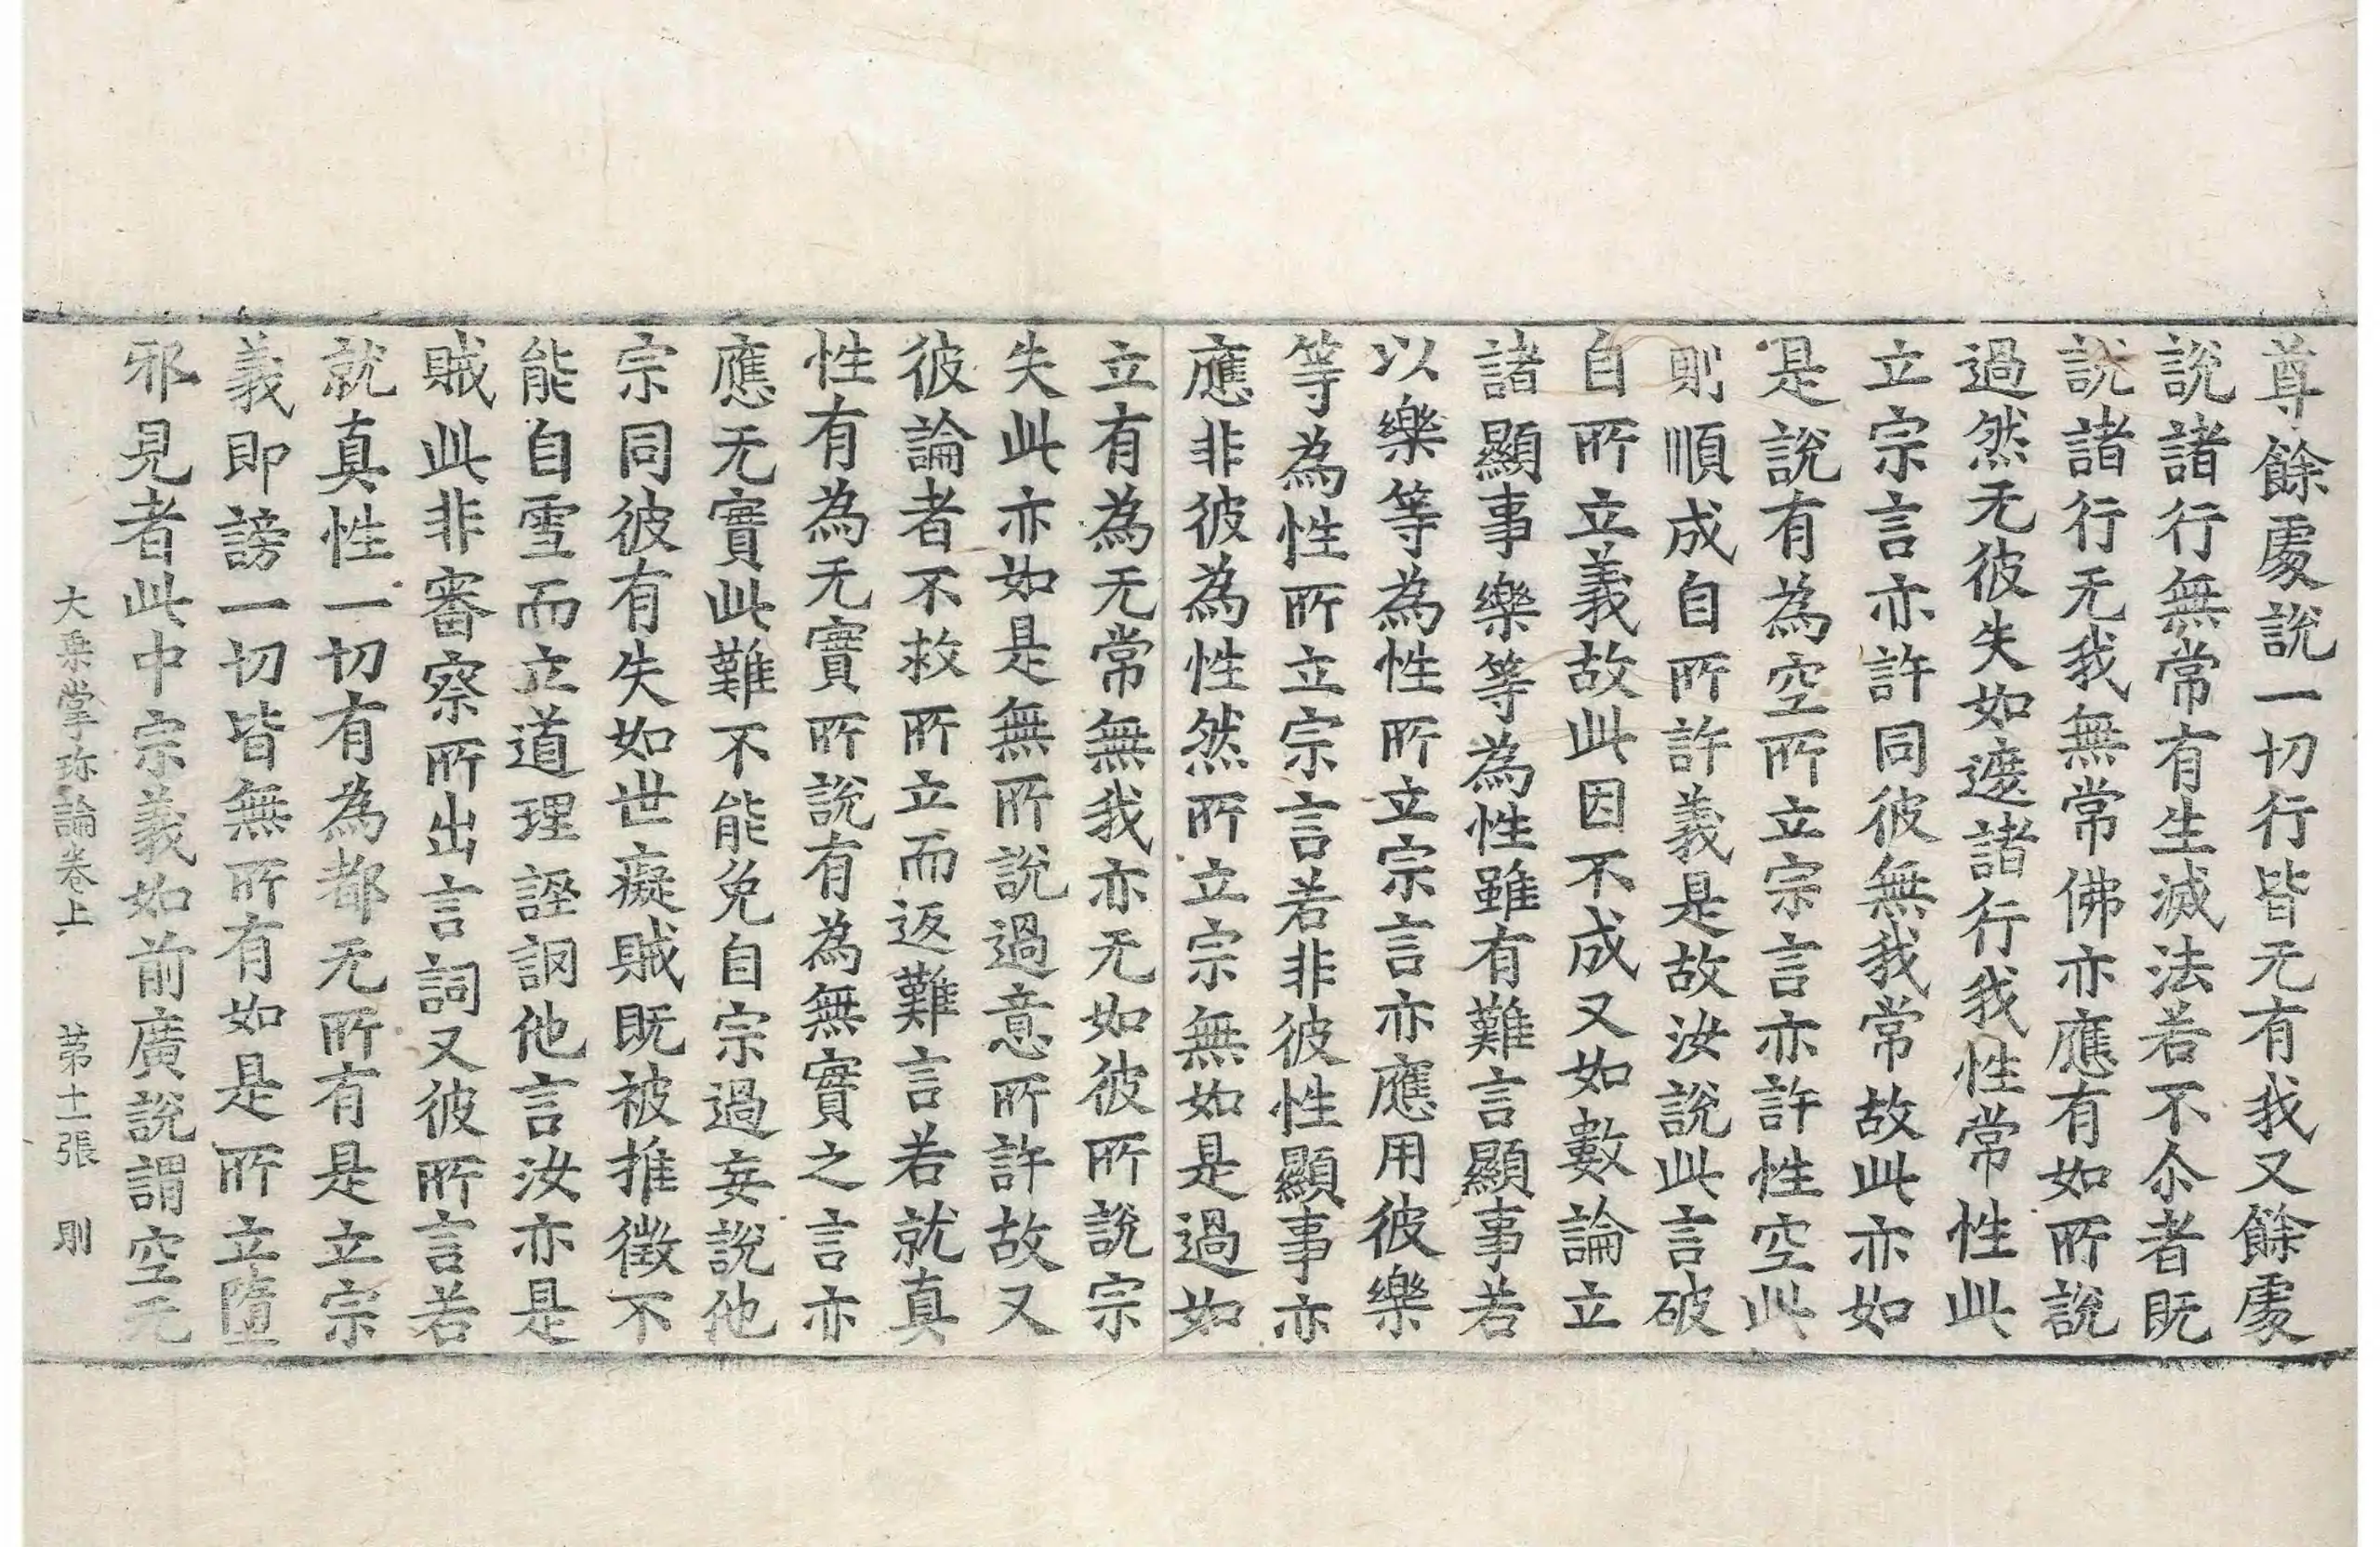 尊餘處説一切行皆无有我又餘處
説諸行無常有生滅法若不尒者既
説諸行无我無常佛亦應有如所説
過然无彼失如遮諸行我性常性此
立宗言亦許同彼無我常故此亦如
是説有為空所立宗言亦許性空此
則順成自所許義是故汝説此言破
自所立義故此因不成又如數論立
諸顯事樂等為性雖有難言顯事若
以樂等為性所立宗言亦應用彼樂
等為性所立宗言若非彼性顯事亦
應非彼為性然所立宗無如是過如
立有為无常無我亦无如彼所説宗
失此亦如是無所説過意所許故又
彼論者不救所立而返難言若就真
性有為无實所説有為無實之言亦
應无實此難不能免自宗過妄説他
宗同彼有失如世癡賊既被推徵不
能自雪而立道理誣調他言汝亦是
賊此非審察所出言詞又彼所言若
就真性一切有為都无所有是立宗
義即謗一切皆無所有如是所立墮
邪見者此中宗義如前廣説謂空无
大乗掌珎論卷上 苐十一張 則